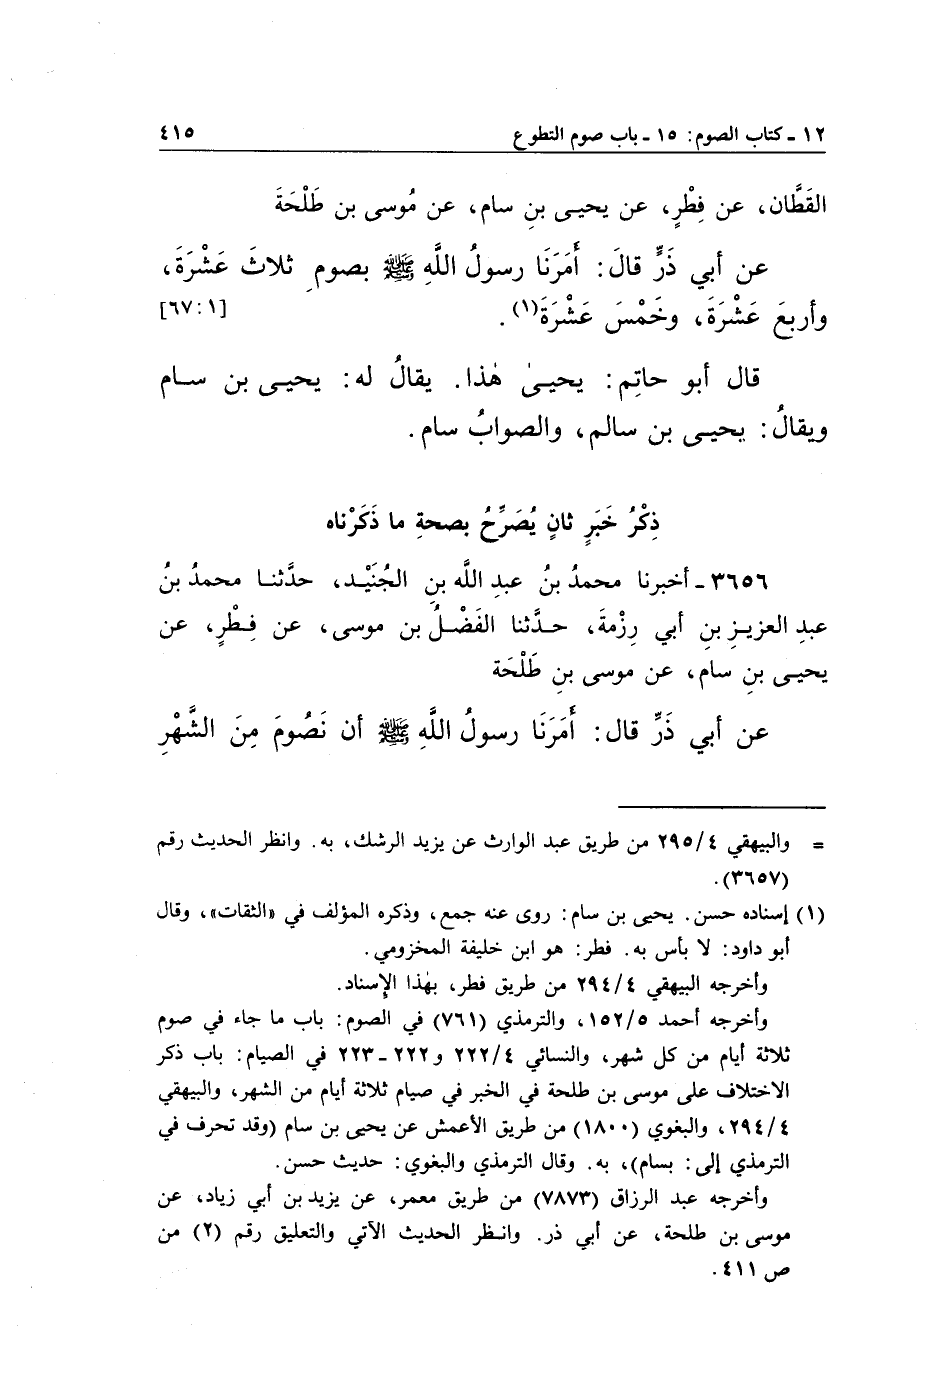 ١٢ ـ كتاب الصوم: ١٥ ـ باب صوم التطوع ٤١٥
القَطَّان، عن فِطْرٍ، عن يحيـى بنِ سام، عن مُوسى بن طَلْحَةَ
عن أبي ذَرٍّ قالَ: أَمَرَنَا رسولُ اللَّهِ ﷺ بصومِ ثلاثَ عَشْرَةَ،
وأربعَ عَشْرَةَ، وخَمْسَ عَشْرَةَ(١). [٦٧:١]
قال أبو حاتِم: يحيـىٰ هٰذا. يقالُ له: يحيـى بن سـام
ويقالُ: يحيـى بن سالم، والصوابُ سام.
ذِكْرُ خَبَرٍ ثانٍ يُصَرِّحُ بصحةِ ما ذَكَرْناه
٣٦٥٦ ـ أخبرنا محمدُ بنُ عبدِ اللَّه بنِ الجُنَيْـد، حدَّثنـا محمدُ بنُ
عبدِ العزيـزِ بنِ أبي رِزْمةَ، حـدَّثنا الفَضْـلُ بن موسى، عن فِـطْرٍ، عن
يحيـى بنِ سام، عن موسى بنِ طَلْحَة
عن أبي ذَرٍّ قال: أَمَرَنَا رسولُ اللَّهِ ﷺ أن نَصُومَ مِنَ الشَّهْرِ
= والبيهقي ٢٩٥/٤ من طريق عبد الوارث عن يزيد الرشك، به. وانظر الحديث رقم
(٣٦٥٧).
(١) إسناده حسن. يحيى بن سام: روى عنه جمع، وذكره المؤلف في «الثقات»، وقال
أبو داود: لا بأس به. فطر: هو ابن خليفة المخزومي.
وأخرجه البيهقي ٢٩٤/٤ من طريق فطر، بهٰذا الإسناد.
وأخرجه أحمد ١٥٢/٥، والترمذي (٧٦١) في الصوم: باب ما جاء في صوم
ثلاثة أيام من كل شهر، والنسائي ٢٢٢/٤ و ٢٢٢ ـ ٢٢٣ في الصيام: باب ذكر
الاختلاف على موسى بن طلحة في الخبر في صيام ثلاثة أيام من الشهر، والبيهقي
٢٩٤/٤، والبغوي (١٨٠٠) من طريق الأعمش عن يحيى بن سام (وقد تحرف في
الترمذي إلى: بسام)، به. وقال الترمذي والبغوي: حديث حسن.
وأخرجه عبد الرزاق (٧٨٧٣) من طريق معمر، عن يزيد بن أبي زياد، عن
موسى بن طلحة، عن أبي ذر. وانـظر الحديث الآتي والتعليق رقم (٢) من
ص ٤١١.